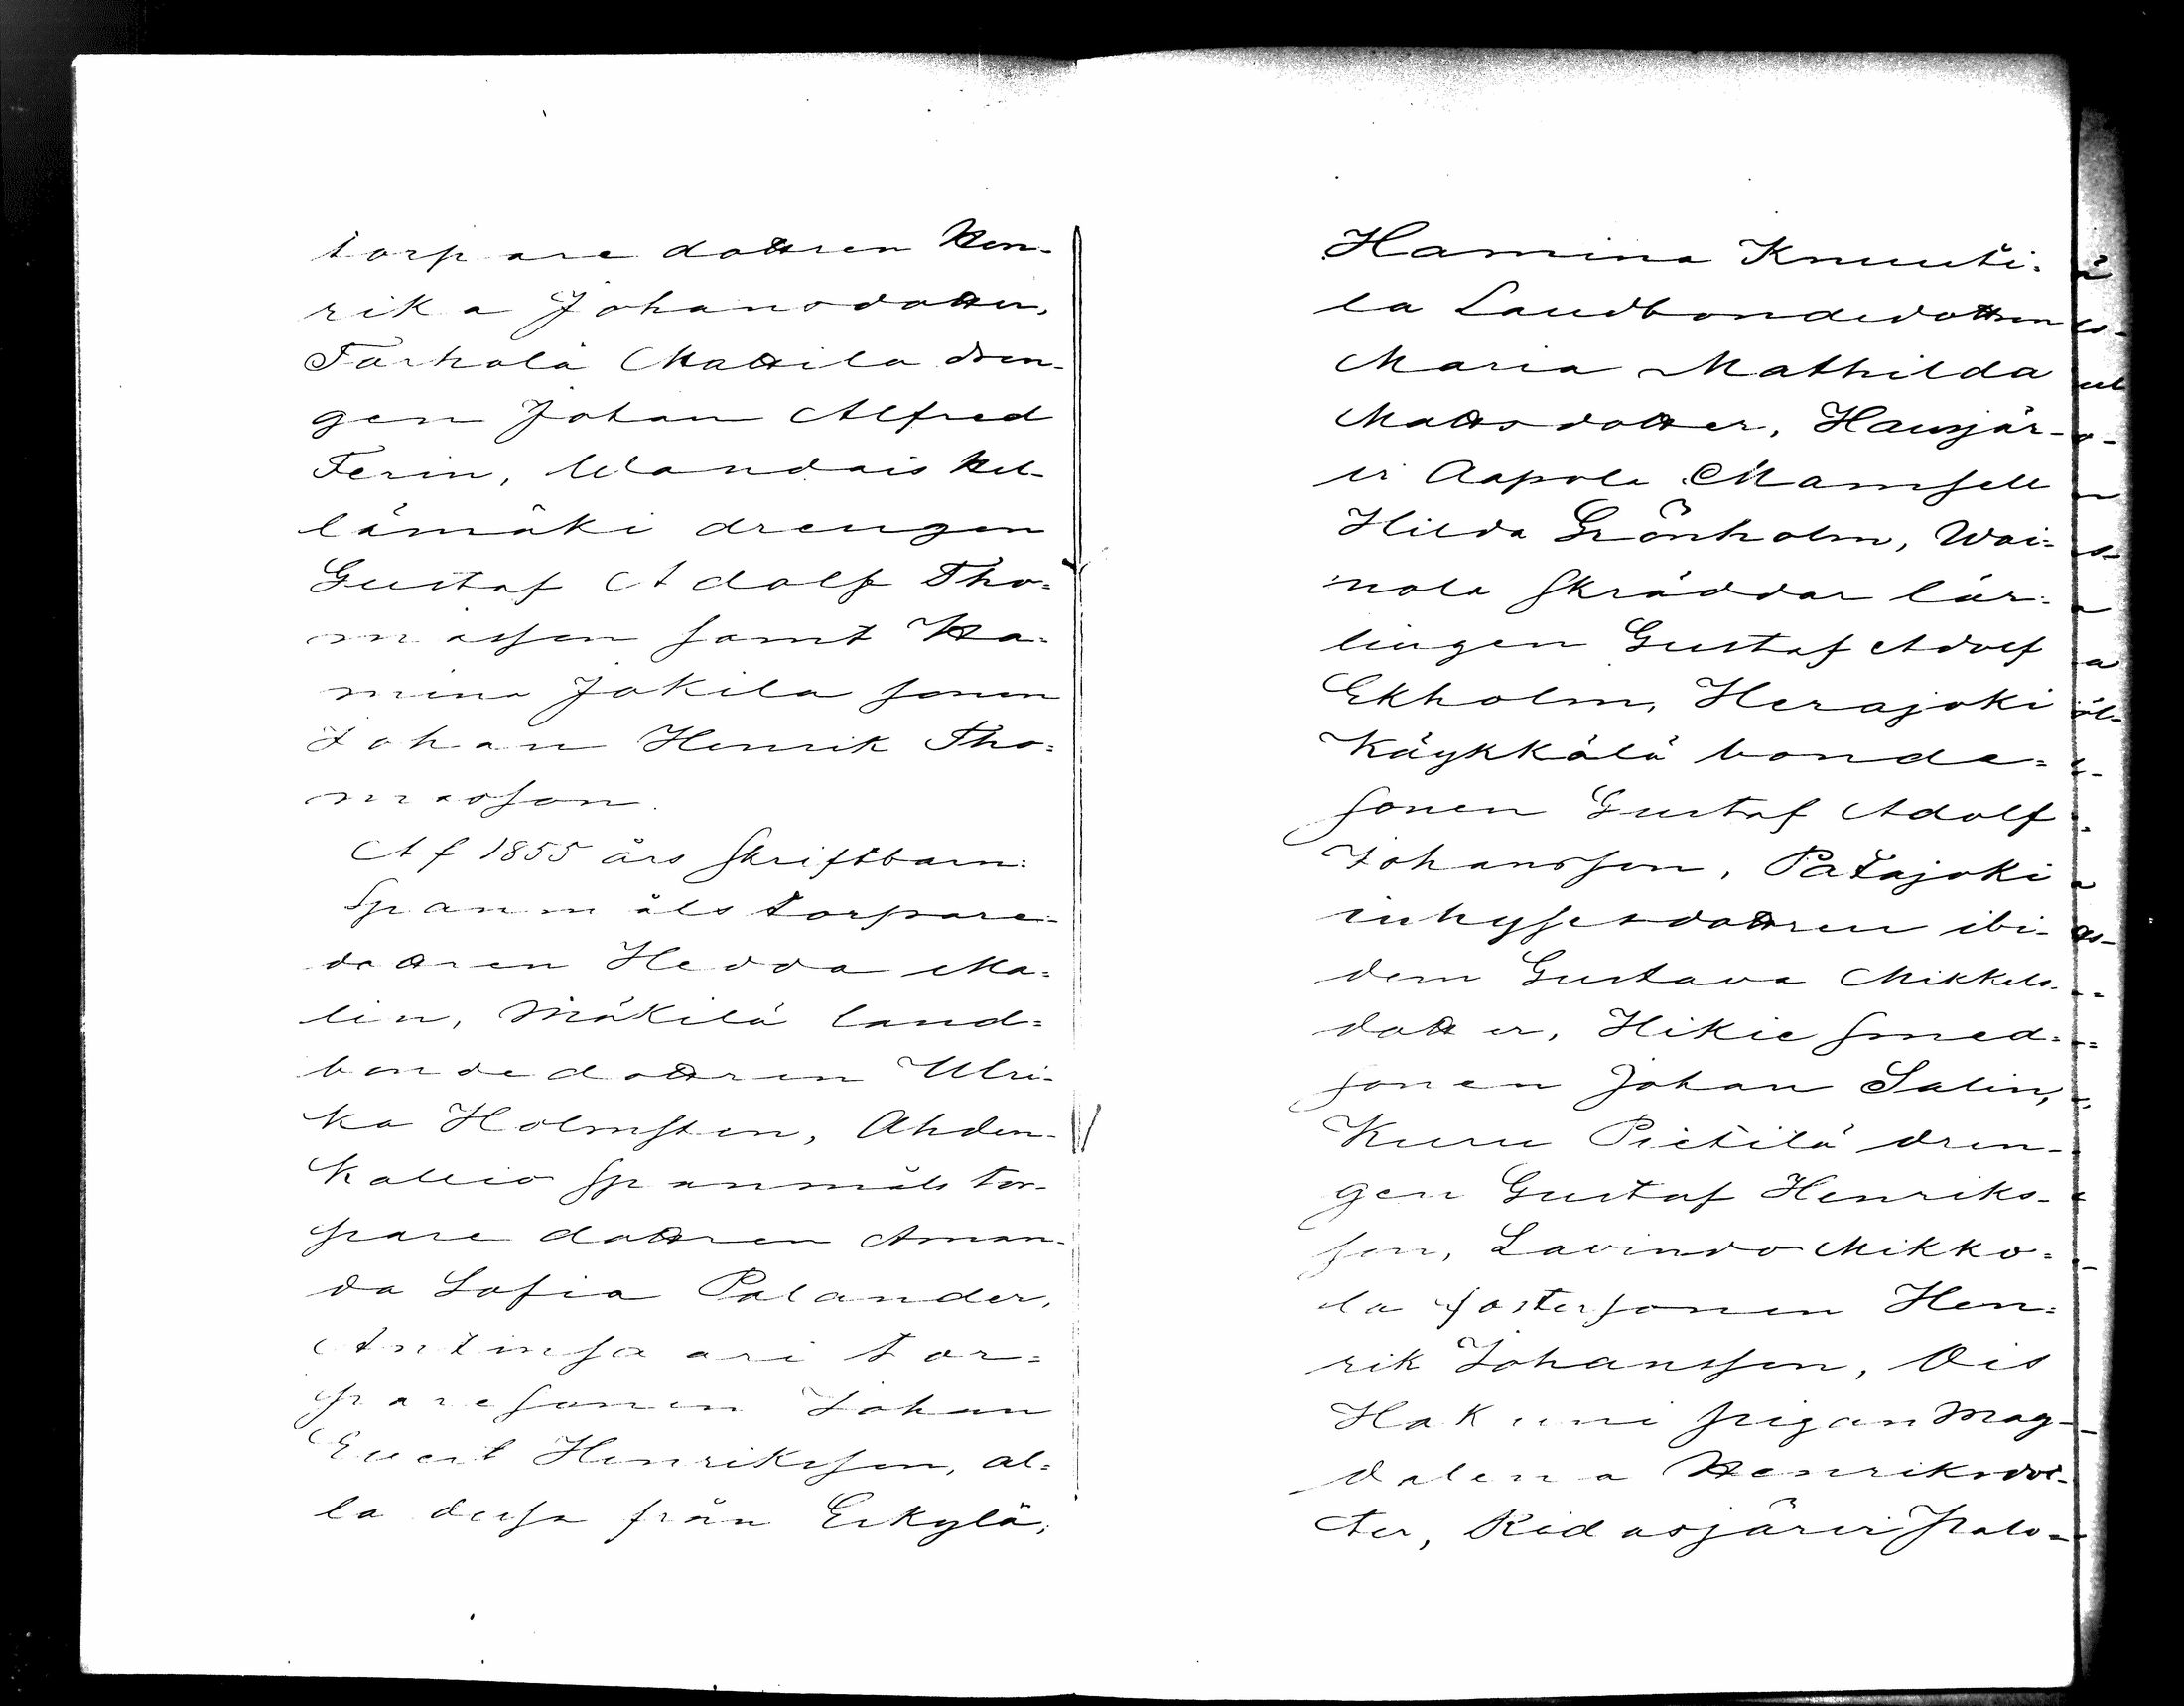 torpare dottren Hen-
rika Johansdotter,
Tarhola Mattila dren-
gen Johan Alfred
Ferin, Wandais Kel-
lämäki drengen
Gustaf Adolf Tho=
masson samt Ha-
mina Jokila sonen
Johan Henrik Tho=
masson.
Af 1855 års Skriftbarn:
Spanmåls torpare-
dottren Hedda Ma=
lin, Mäkilä land=
bondedottren Ulri-
ka Holmsten, Ahden-
kallio Spanmåls tor-
pare dottren Aman-
da Sofia Palander,
Antinsaari tor=
paresonen Johan
Evert Henriksson, al=
la dessa från Erkylä;
Hamina Knuuti=
la Landbondedottren
Maria Mathilda
Mattsdotter, Hausjär-
vi Aapola Mamsell
Hilda Grönholm, Woi=
nola Skräddar lär=
lingen Gustaf Adolf
Ekholm, Herajoki
Käykkälä bonde=
sonen Gustaf Adolf
Johansson, Patajoki
inhysesdottren ibi-
dem Gustava Mikkels-
dotter, Hikie smed=
sonen Johan Salin,
Kuru Pietilä dren-
gen Gustaf Henriks-
son, Lavinto Mikko=
la fostersonen Hen=
rik Johansson, Ois
Hakuni pigan Mag-
dalena Henriksdot-
ter, Ridasjärvi Palo=